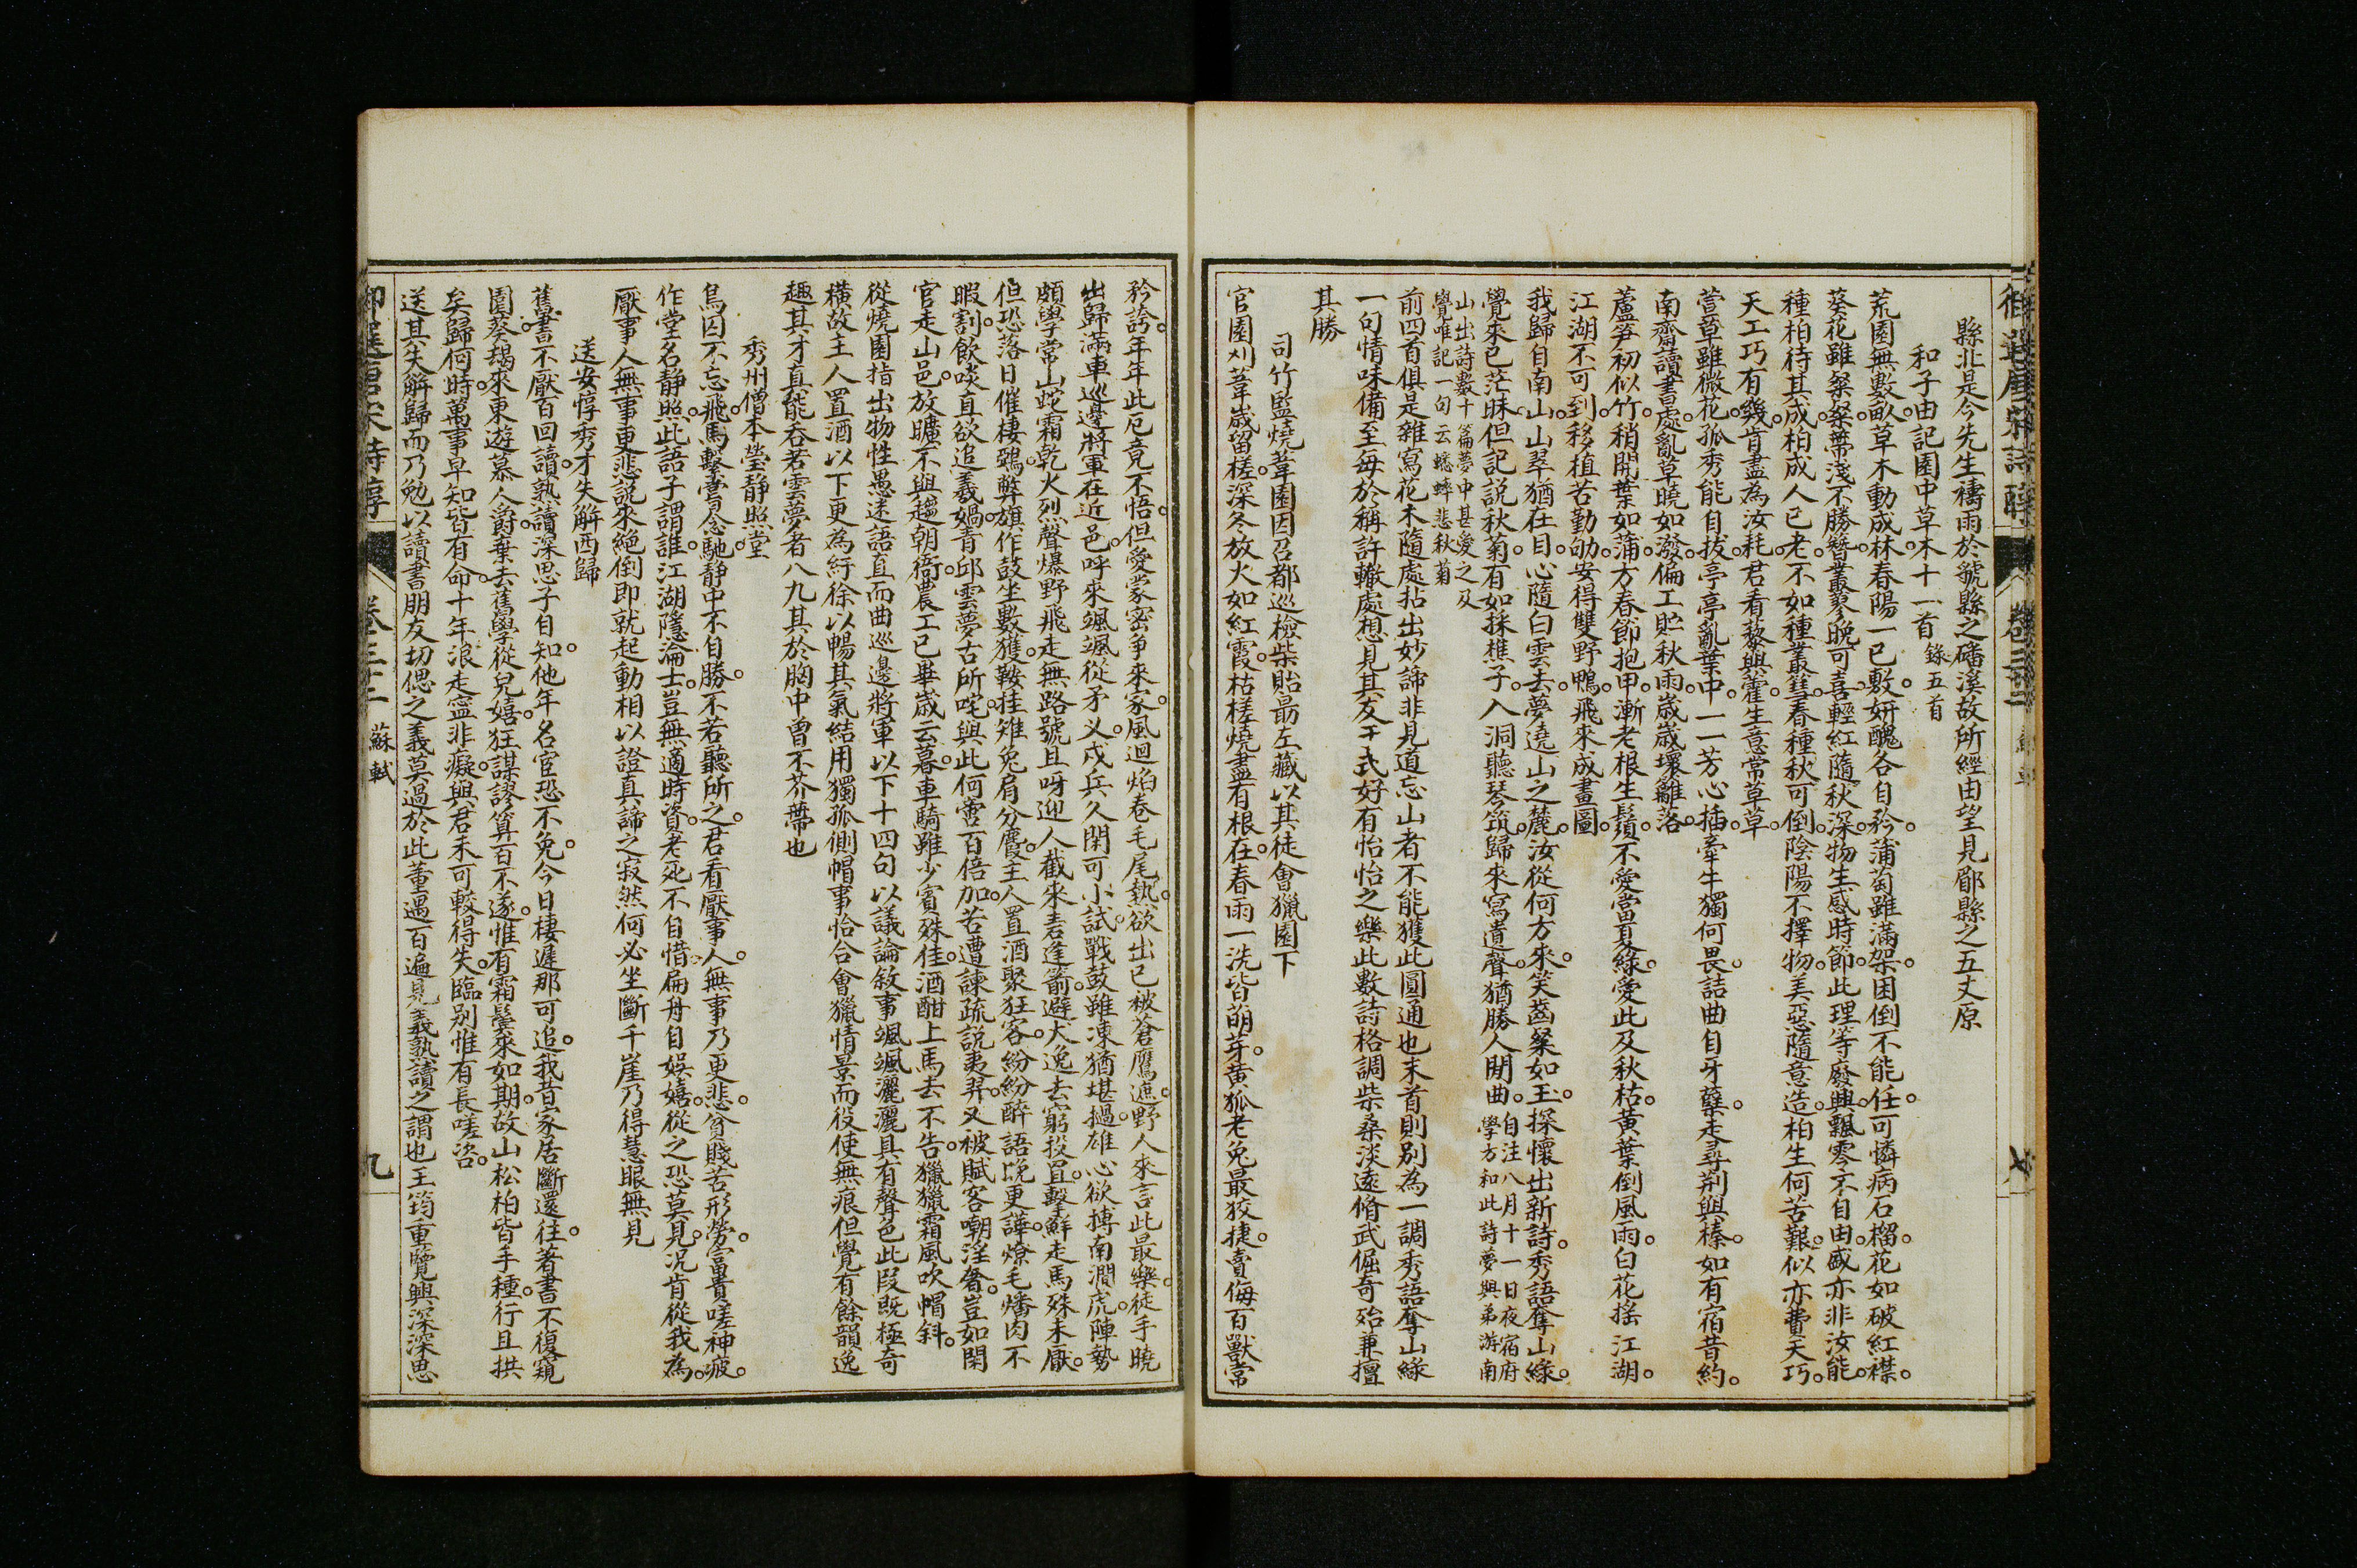 縣北是今先生禱雨於虢縣之磻溪故所經由望見郿縣之五丈原
和子由記園中草木十一首錄五首
荒園無數畝。草木動成林。春陽一已敷。妍醜各自矜。蒲萄雖滿架。困倒不能任。可憐病石榴。花如破紅襟。
葵花雖粲粲。蒂淺不勝簪。叢蓼晚可喜。輕紅隨秋深。物生感時節。此理等廢興。飄零不自由。盛亦非汝能。
種柏待其成。柏成人已老。不如種叢篲。春種秋可倒。陰陽不擇物。美惡隨意造。柏生何苦艱。似亦費天巧。
天工巧有幾。肯盡為汝耗。君看藜與藿。生意常草草。
萱草雖微花。孤秀能自拔。亭亭亂葉中。一一芳心插。牽牛獨何畏。詰曲自牙蘖。走尋荆與榛。如有宿昔約。
南齋讀書處。亂草曉如潑。偏工貯秋雨。歲歲壞籬落。
蘆笋初似竹。稍開葉如蒲。方春節抱甲。漸老根生鬚。不愛當夏綠。愛此及秋枯。黃葉倒風雨。白花搖江湖。
江湖不可到。移植苦勤劬。安得雙野鴨。飛來成畫圖。
我歸自南山。山翠猶在目。心隨白雲去。夢遶山之麓。汝從何方來。笑齒粲如玉。探懷出新詩。秀語奪山綠。
覺來已茫昧。但記說秋菊。有如採樵子。入洞聽琴筑。歸來寫遺聲。猶勝人間曲。自注八月十一日夜宿府
學方和此詩夢與弟游南
山出詩數十篇夢中甚愛之及
覺唯記一句云蟋蟀悲秋菊
前四首俱是雜寫花木隨處拈出妙諦非見道忘山者不能獲此圓通也末首則別為一調秀語奪山綠
一句情味備至每於稱許轍處想見其友于式好有怡怡之樂此數詩格調柴桑淡遠脩武倔奇殆兼擅
其勝
司竹監燒葦園因召都巡檢柴貽勗左藏以其徒會獵園下
官園刈葦歲留槎。深冬放火如紅霞。枯槎燒盡有根在。春雨一洗皆萌芽。黃狐老兔最狡捷。賣侮百獸常
矜誇。年年此厄竟不悟。但愛蒙密爭來家。風迴焰卷毛尾熱。欲出已被蒼鷹遮。野人來言此最樂。徒手曉
出歸滿車。巡邊將軍在近邑。呼來颯颯從矛叉。戍兵久閑可小試。戰鼓雖凍猶堪撾。雄心欲搏南澗虎。陣勢
頗學常山蛇。霜乾火烈聲爆野。飛走無路號且呀。迎人截來砉逢箭。避犬逸去窮投罝。擊鮮走馬殊未厭。
但恐落日催棲鴉。弊旗作鼓坐數獲。鞍挂雉兔肩分麚。主人置酒聚狂客。紛紛醉語晚更譁。燎毛燔肉不
暇割。飲啖直欲追羲媧。青邱雲夢古所咤。與此何啻百倍加。苦遭諫疏說夷羿。又被賦客嘲淫奢。豈如閑
官走山邑。放曠不與趨朝衙。農工已畢歲云暮。車騎雖少賓殊佳。酒酣上馬去不告。獵獵霜風吹帽斜。
從燒園指出物性愚迷語直而曲巡邊將軍以下十四句以議論敘事颯颯灑灑具有聲色此段既極奇
橫故主人置酒以下更為紆徐以暢其氣結用獨孤側帽事恰合會獵情景而役使無痕但覺有餘韻逸
趣其才直能吞若雲夢者八九其於胸中曾不芥蔕也
秀州僧本瑩靜照堂
鳥囚不忘飛。馬繫嘗念馳。靜中不自勝。不若聽所之。君看厭事人。無事乃更悲。貧賤苦形勞。富貴嗟神疲。
作堂名靜照。此語子謂誰。江湖隱淪士。豈無適時資。老死不自惜。扁舟自娛嬉。從之恐莫見。況肯從我為。
厭事人無事更悲說來絕倒即就起動相以證真諦之寂然何必坐斷千崖乃得慧眼無見
送安惇秀才失解西歸
舊書不厭百回讀。熟讀深思子自知。他年名宦恐不免。今日棲遲那可追。我昔家居斷還往。著書不復窺
園葵。朅來東遊慕人爵。棄去舊學從兒嬉。狂謀謬算百不遂。惟有霜鬢來如期。故山松柏皆手種。行且拱
矣歸何時。萬事早知皆有命。十年浪走寧非癡。與君未可較得失。臨別惟有長嗟咨。
送其失解歸而乃勉以讀書朋友切偲之義莫過於此董遇百遍見義熟讀之謂也王筠重覽興深深思
御選唐宋詩醇
卷三十二
蘇軾
九